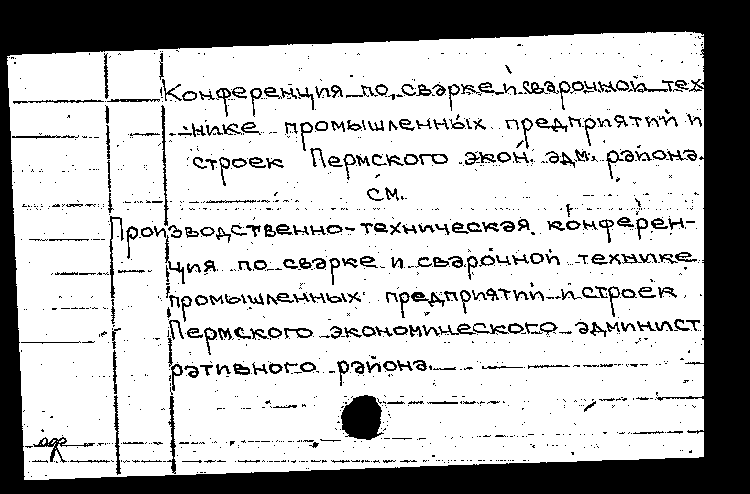 Конференция по сварке и сварочной тех-
нике промышленных предприятий и
строек Пермского экон. адм. района.
см.
Производственно-техническая конферен-
ция по сварке и сварочной технике
промышленных предприятий и строек
Пермского экономического админист
ративного района.